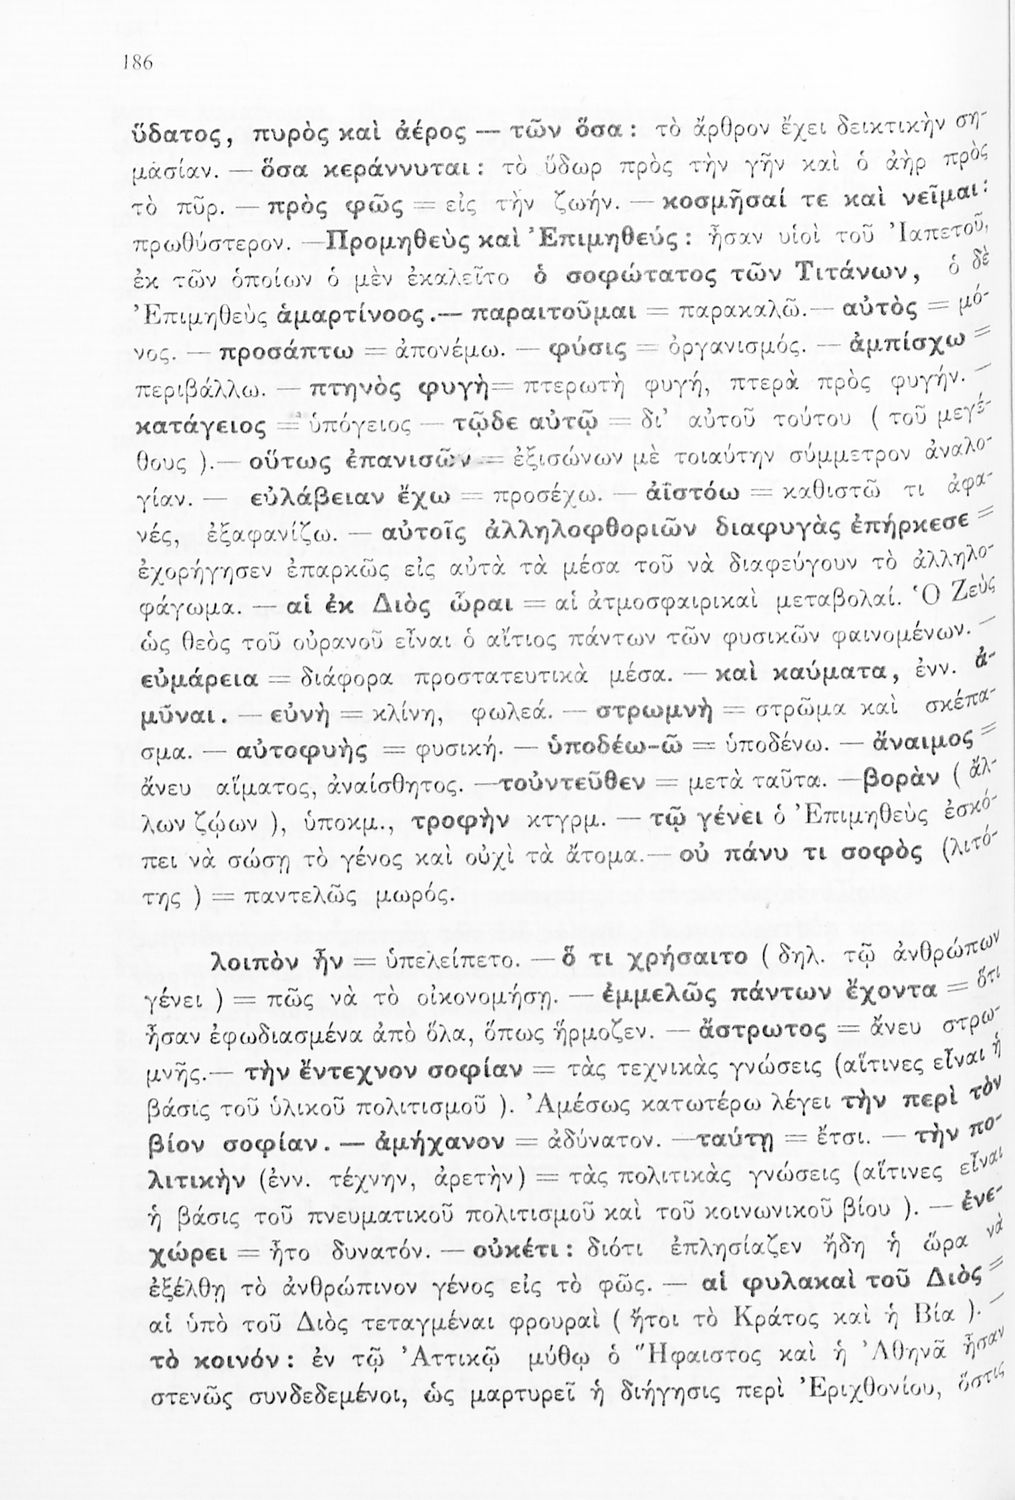 186
ὕδατος, πυρὸς καὶ ἀέρος — τῶν ὅσα: τὸ ἄρθρον ἔχει δεικτικὴν ση-
μασίαν. — ὅσα κεράννυται: τὸ ὕδωρ πρὸς τὴν γῆν καὶ ὁ ἀὴρ πρὸς
τὸ πῦρ. — πρὸς φῶς = εἰς τὴν ζωήν. — κοσμῆσαί τε καὶ νεῖμαι:
πρωθύστερον. — Προμηθεὺς καὶ Ἐπιμηθεύς: ἦσαν υἱοὶ τοῦ Ἰαπετοῦ,
ἐκ τῶν ὁποίων ὁ μὲν ἐκαλεῖτο ὁ σοφώτατος τῶν Τιτάνων, ὁ δὲ
Ἐπιμηθεὺς ἁμαρτίνοος.— παραιτοῦμαι = παρακαλῶ.— αὐτὸς = μό-
νος. — προσάπτω = ἀπονέμω. — φύσις = ὀργανισμός. — ἀμπίσχω =
περιβάλλω. — πτηνὸς φυγὴ = πτερωτὴ φυγή, πτερὰ πρὸς φυγήν. —
κατάγειος = ὑπόγειος — τῷδε αὐτῷ = δι' αὐτοῦ τούτου ( τοῦ μεγέ-
θους ).— οὕτως ἐπανισῶν = ἐξισώνων μὲ τοιαύτην σύμμετρον ἀναλο-
γίαν. — εὐλάβειαν ἔχω = προσέχω. — ἀϊστόω = καθιστῶ τι ἀφα-
νές, ἐξαφανίζω. — αὐτοῖς ἀλληλοφθοριῶν διαφυγὰς ἐπήρκεσε =
ἐχορήγησεν ἐπαρκῶς εἰς αὐτὰ τὰ μέσα τοῦ νὰ διαφεύγουν τὸ ἀλληλο-
φάγωμα. — αἱ ἐκ Διὸς ὧραι = αἱ ἀτμοσφαιρικαὶ μεταβολαί. Ὁ Ζεὺς
ὡς θεὸς τοῦ οὐρανοῦ εἶναι ὁ αἴτιος πάντων τῶν φυσικῶν φαινομένων. —
εὐμάρεια = διάφορα προστατευτικὰ μέσα. — καὶ καύματα, ἐνν. ἀ-
μῦναι. — εὐνὴ = κλίνη, φωλεά. — στρωμνὴ = στρῶμα καὶ σκέπα-
σμα. — αὐτοφυὴς = φυσική. — ὑποδέω-ῶ = ὑποδένω. — ἄναιμος =
ἄνευ αἵματος, ἀναίσθητος. — τοὐντεῦθεν = μετὰ ταῦτα. — βορὰν ( ἄλ-
λων ζῴων ), ὑποκμ., τροφὴν κτγρμ. — τῷ γένει ὁ Ἐπιμηθεὺς ἐσκό-
πει νὰ σώσῃ τὸ γένος καὶ οὐχὶ τὰ ἄτομα.— οὐ πάνυ τι σοφὸς (λιτό-
της ) = παντελῶς μωρός.
λοιπὸν ἦν = ὑπελείπετο. — ὅ τι χρήσαιτο ( δηλ. τῷ ἀνθρώπων
γένει ) = πῶς νὰ τὸ οἰκονομήσῃ. — ἐμμελῶς πάντων ἔχοντα = ὅτι
ἦσαν ἐφωδιασμένα ἀπὸ ὅλα, ὅπως ἥρμοζεν. — ἄστρωτος = ἄνευ στρω-
μνῆς.— τὴν ἔντεχνον σοφίαν = τὰς τεχνικὰς γνώσεις (αἵτινες εἶναι ἡ
βάσις τοῦ ὑλικοῦ πολιτισμοῦ ). Ἀμέσως κατωτέρω λέγει τὴν περὶ τὸν
βίον σοφίαν. — ἀμήχανον = ἀδύνατον. — ταύτῃ = ἔτσι. — τὴν πο-
λιτικὴν (ἐνν. τέχνην, ἀρετὴν) = τὰς πολιτικὰς γνώσεις (αἵτινες εἶναι
ἡ βάσις τοῦ πνευματικοῦ πολιτισμοῦ καὶ τοῦ κοινωνικοῦ βίου ). — ἐνε-
χώρει = ἦτο δυνατόν. — οὐκέτι: διότι ἐπλησίαζεν ἤδη ἡ ὥρα νὰ
ἐξέλθῃ τὸ ἀνθρώπινον γένος εἰς τὸ φῶς. — αἱ φυλακαὶ τοῦ Διὸς =
αἱ ὑπὸ τοῦ Διὸς τεταγμέναι φρουραὶ ( ἤτοι τὸ Κράτος καὶ ἡ Βία ). —
τὸ κοινόν: ἐν τῷ Ἀττικῷ μύθῳ ὁ Ἥφαιστος καὶ ἡ Ἀθηνᾶ ἦσαν
στενῶς συνδεδεμένοι, ὡς μαρτυρεῖ ἡ διήγησις περὶ Ἐριχθονίου, ὅστις